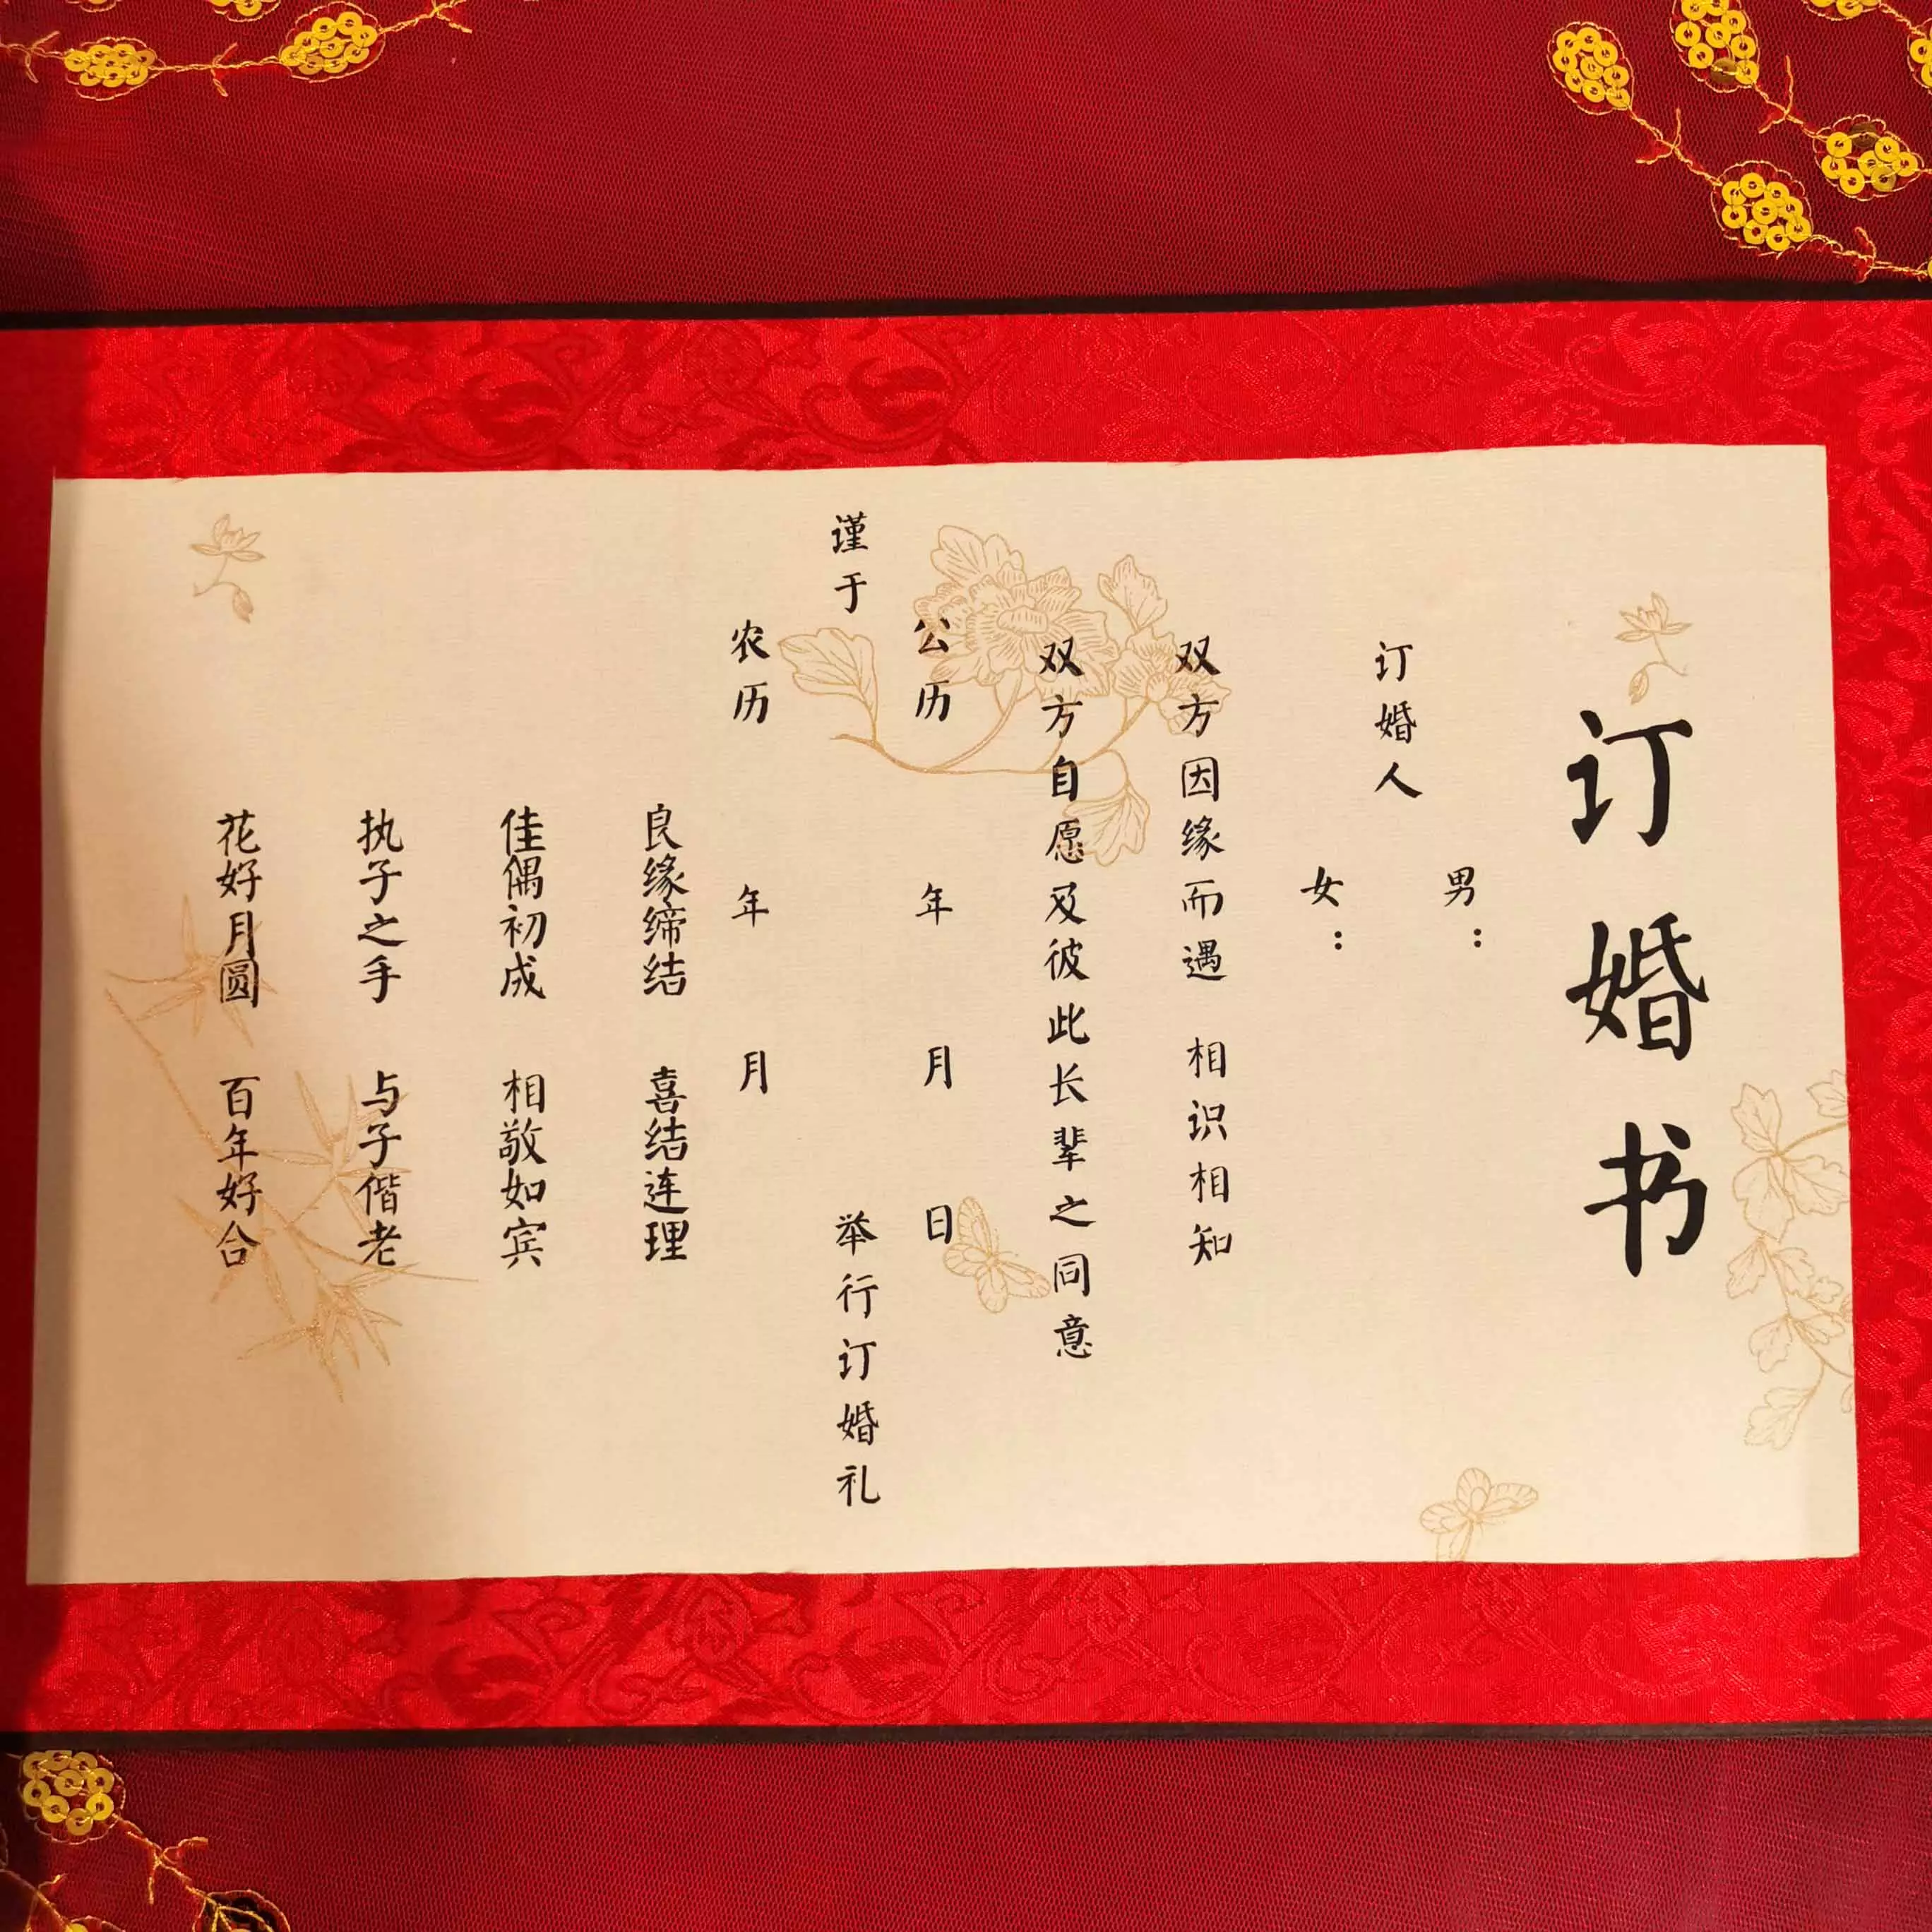 订婚书
男：
订婚人
女：
双方因缘而遇 相识相知
双方自愿及彼此长辈之同意
公历 年 月 日
谨于 举行订婚礼
农历 年 月
良缘缔结 喜结连理
佳偶初成 相敬如宾
执子之手 与子偕老
花好月圆 百年好合